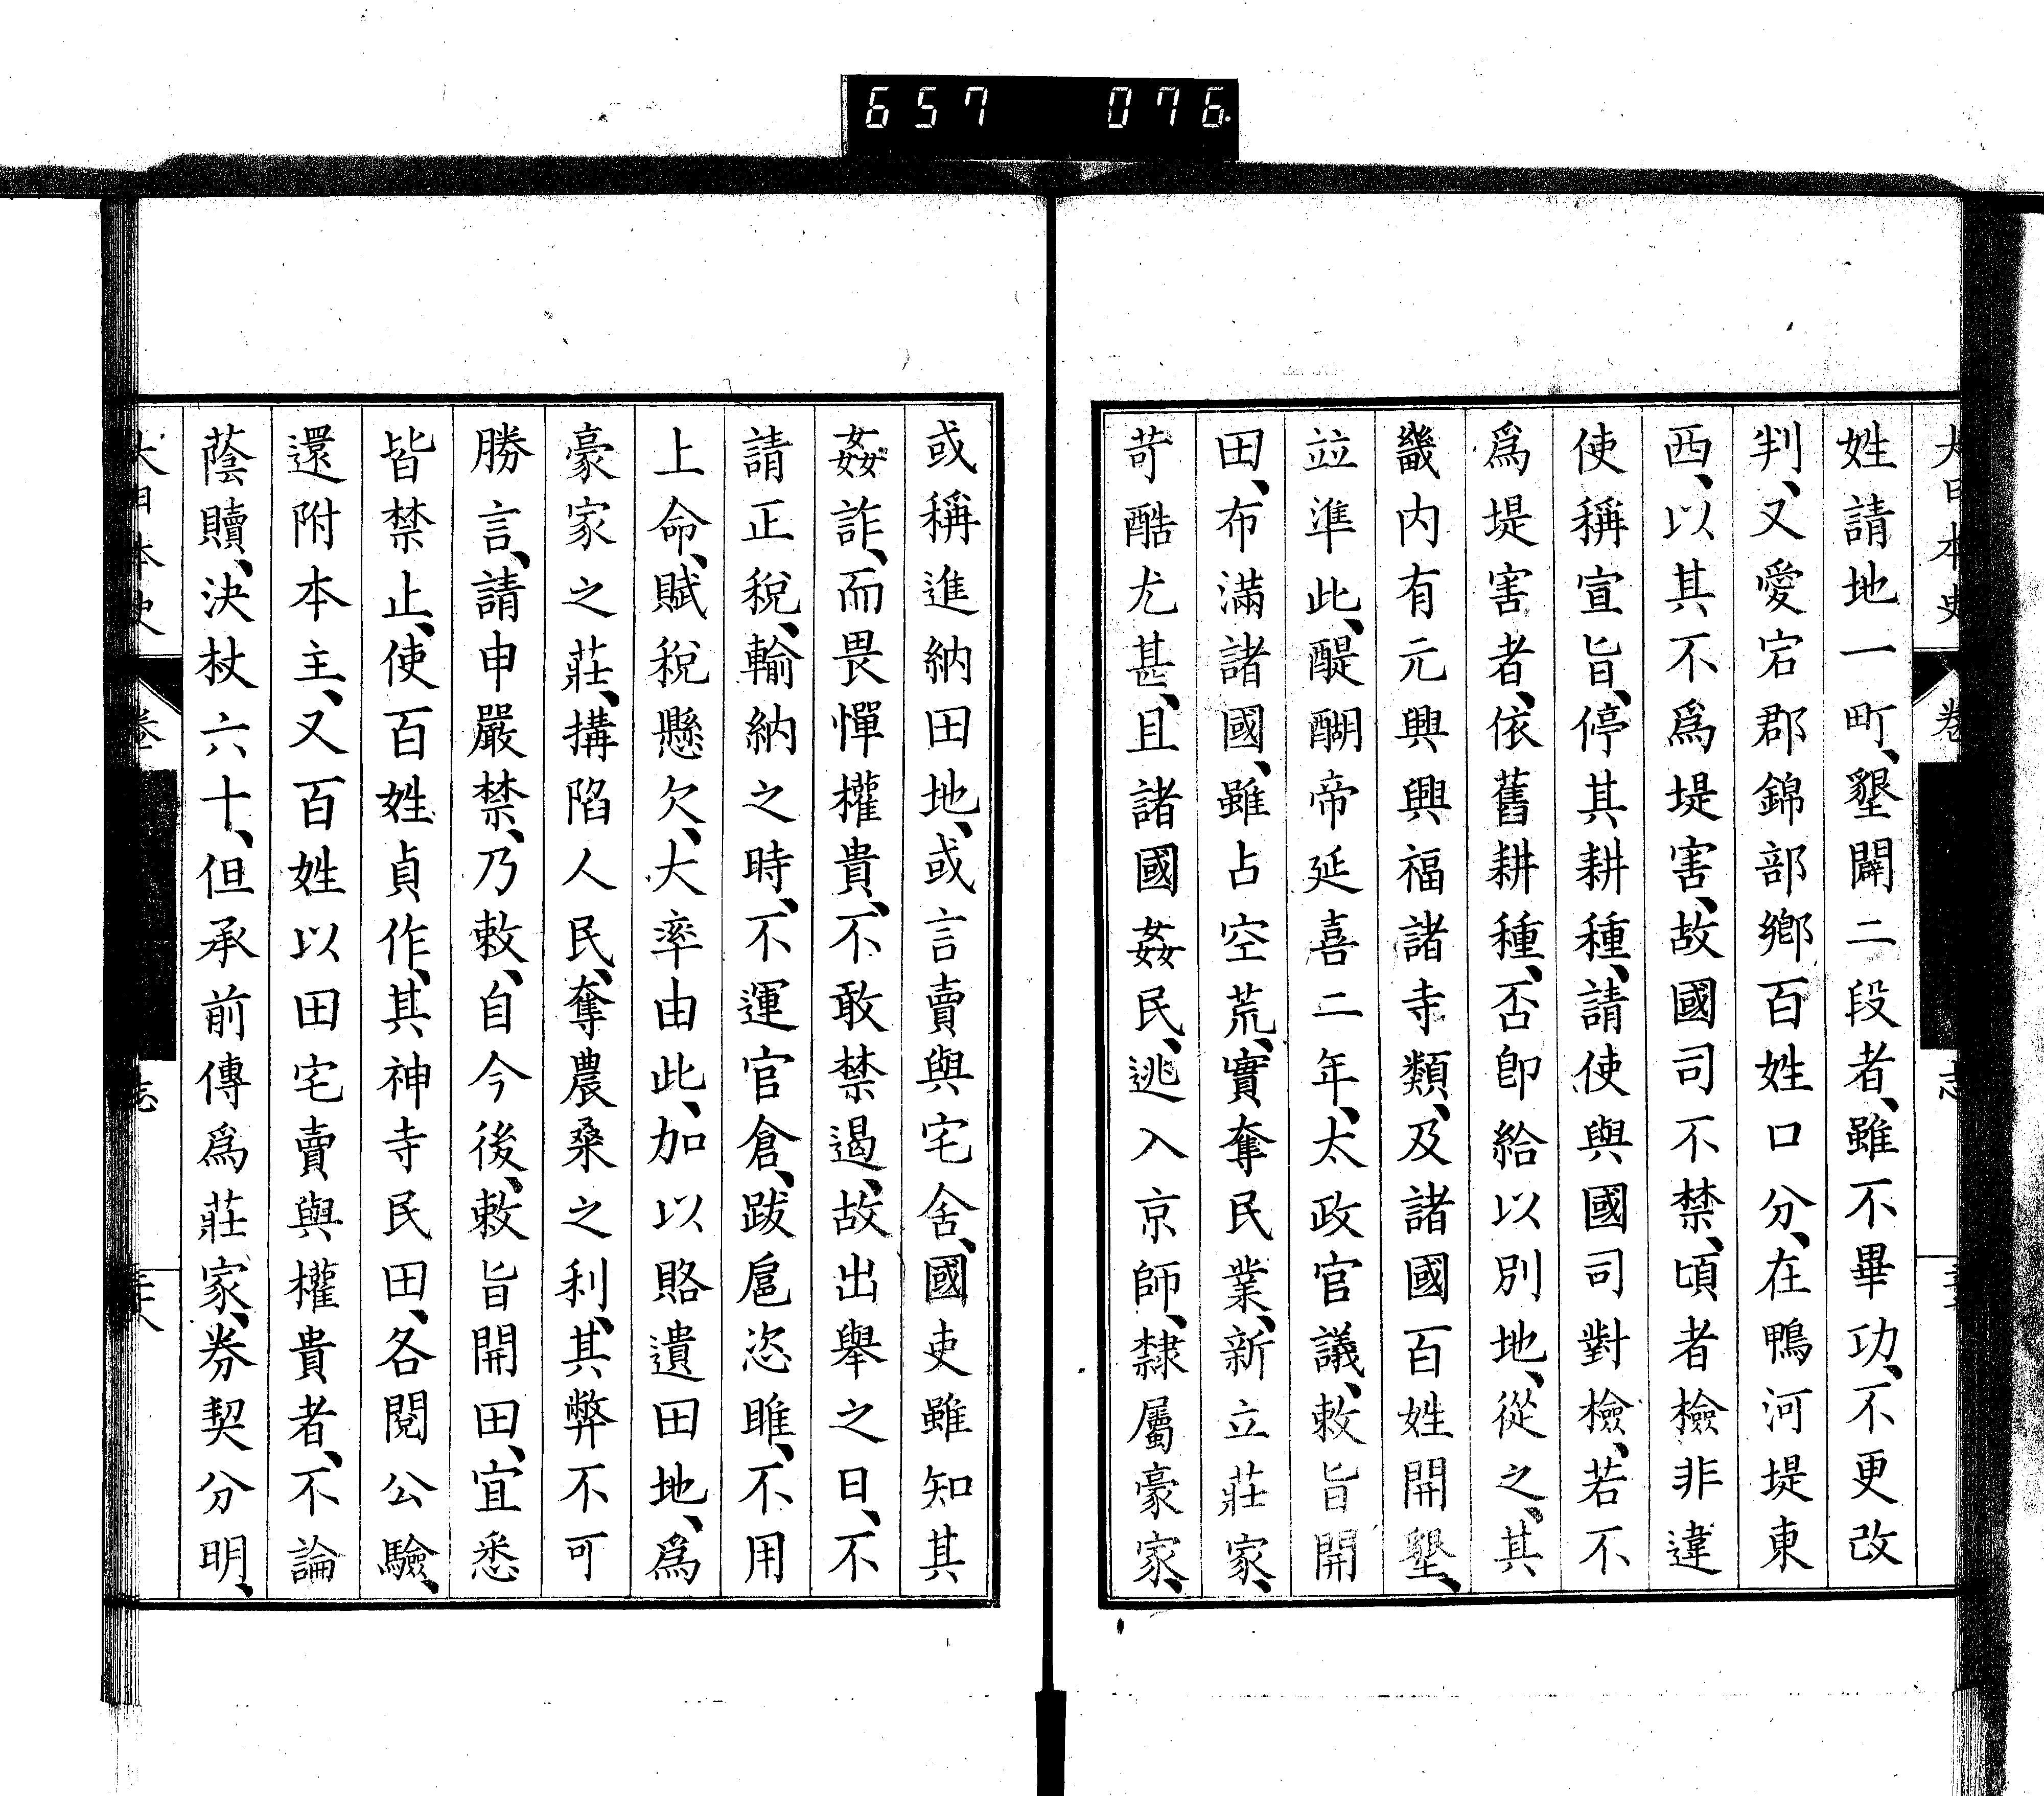 657 076
大日本史 卷 志
姓請地一町、墾闢二段者、雖不畢功、不更改
判、又愛宕郡錦部鄉百姓口分、在鴨河堤東
西、以其不爲堤害、故國司不禁、頃者檢非違
使稱宣旨、停其耕種、請使與國司對檢、若不
爲堤害者、依舊耕種、否卽給以別地、從之、其
畿内有元興興福諸寺類、及諸國百姓開墾、
竝準此、醍醐帝延喜二年、太政官議、敕旨開
田、布滿諸國、雖占空荒、實奪民業、新立莊家、
苛酷尤甚、且諸國姦民、逃入京師、隸屬豪家、
或稱進納田地、或言賣與宅舍、國吏雖知其
姦詐、而畏憚權貴、不敢禁遏、故出舉之日、不
請正稅、輸納之時、不運官倉、跋扈恣雎、不用
上命、賦稅懸欠、大率由此、加以賂遺田地、爲
豪家之莊、搆陷人民、奪農桑之利、其弊不可
勝言、請申嚴禁、乃敕、自今後、敕旨開田、宜悉
皆禁止、使百姓貞作、其神寺民田、各閱公驗、
還附本主、又百姓以田宅賣與權貴者、不論
蔭贖、決杖六十、但承前傳爲莊家、券契分明、
大日本史 卷 志